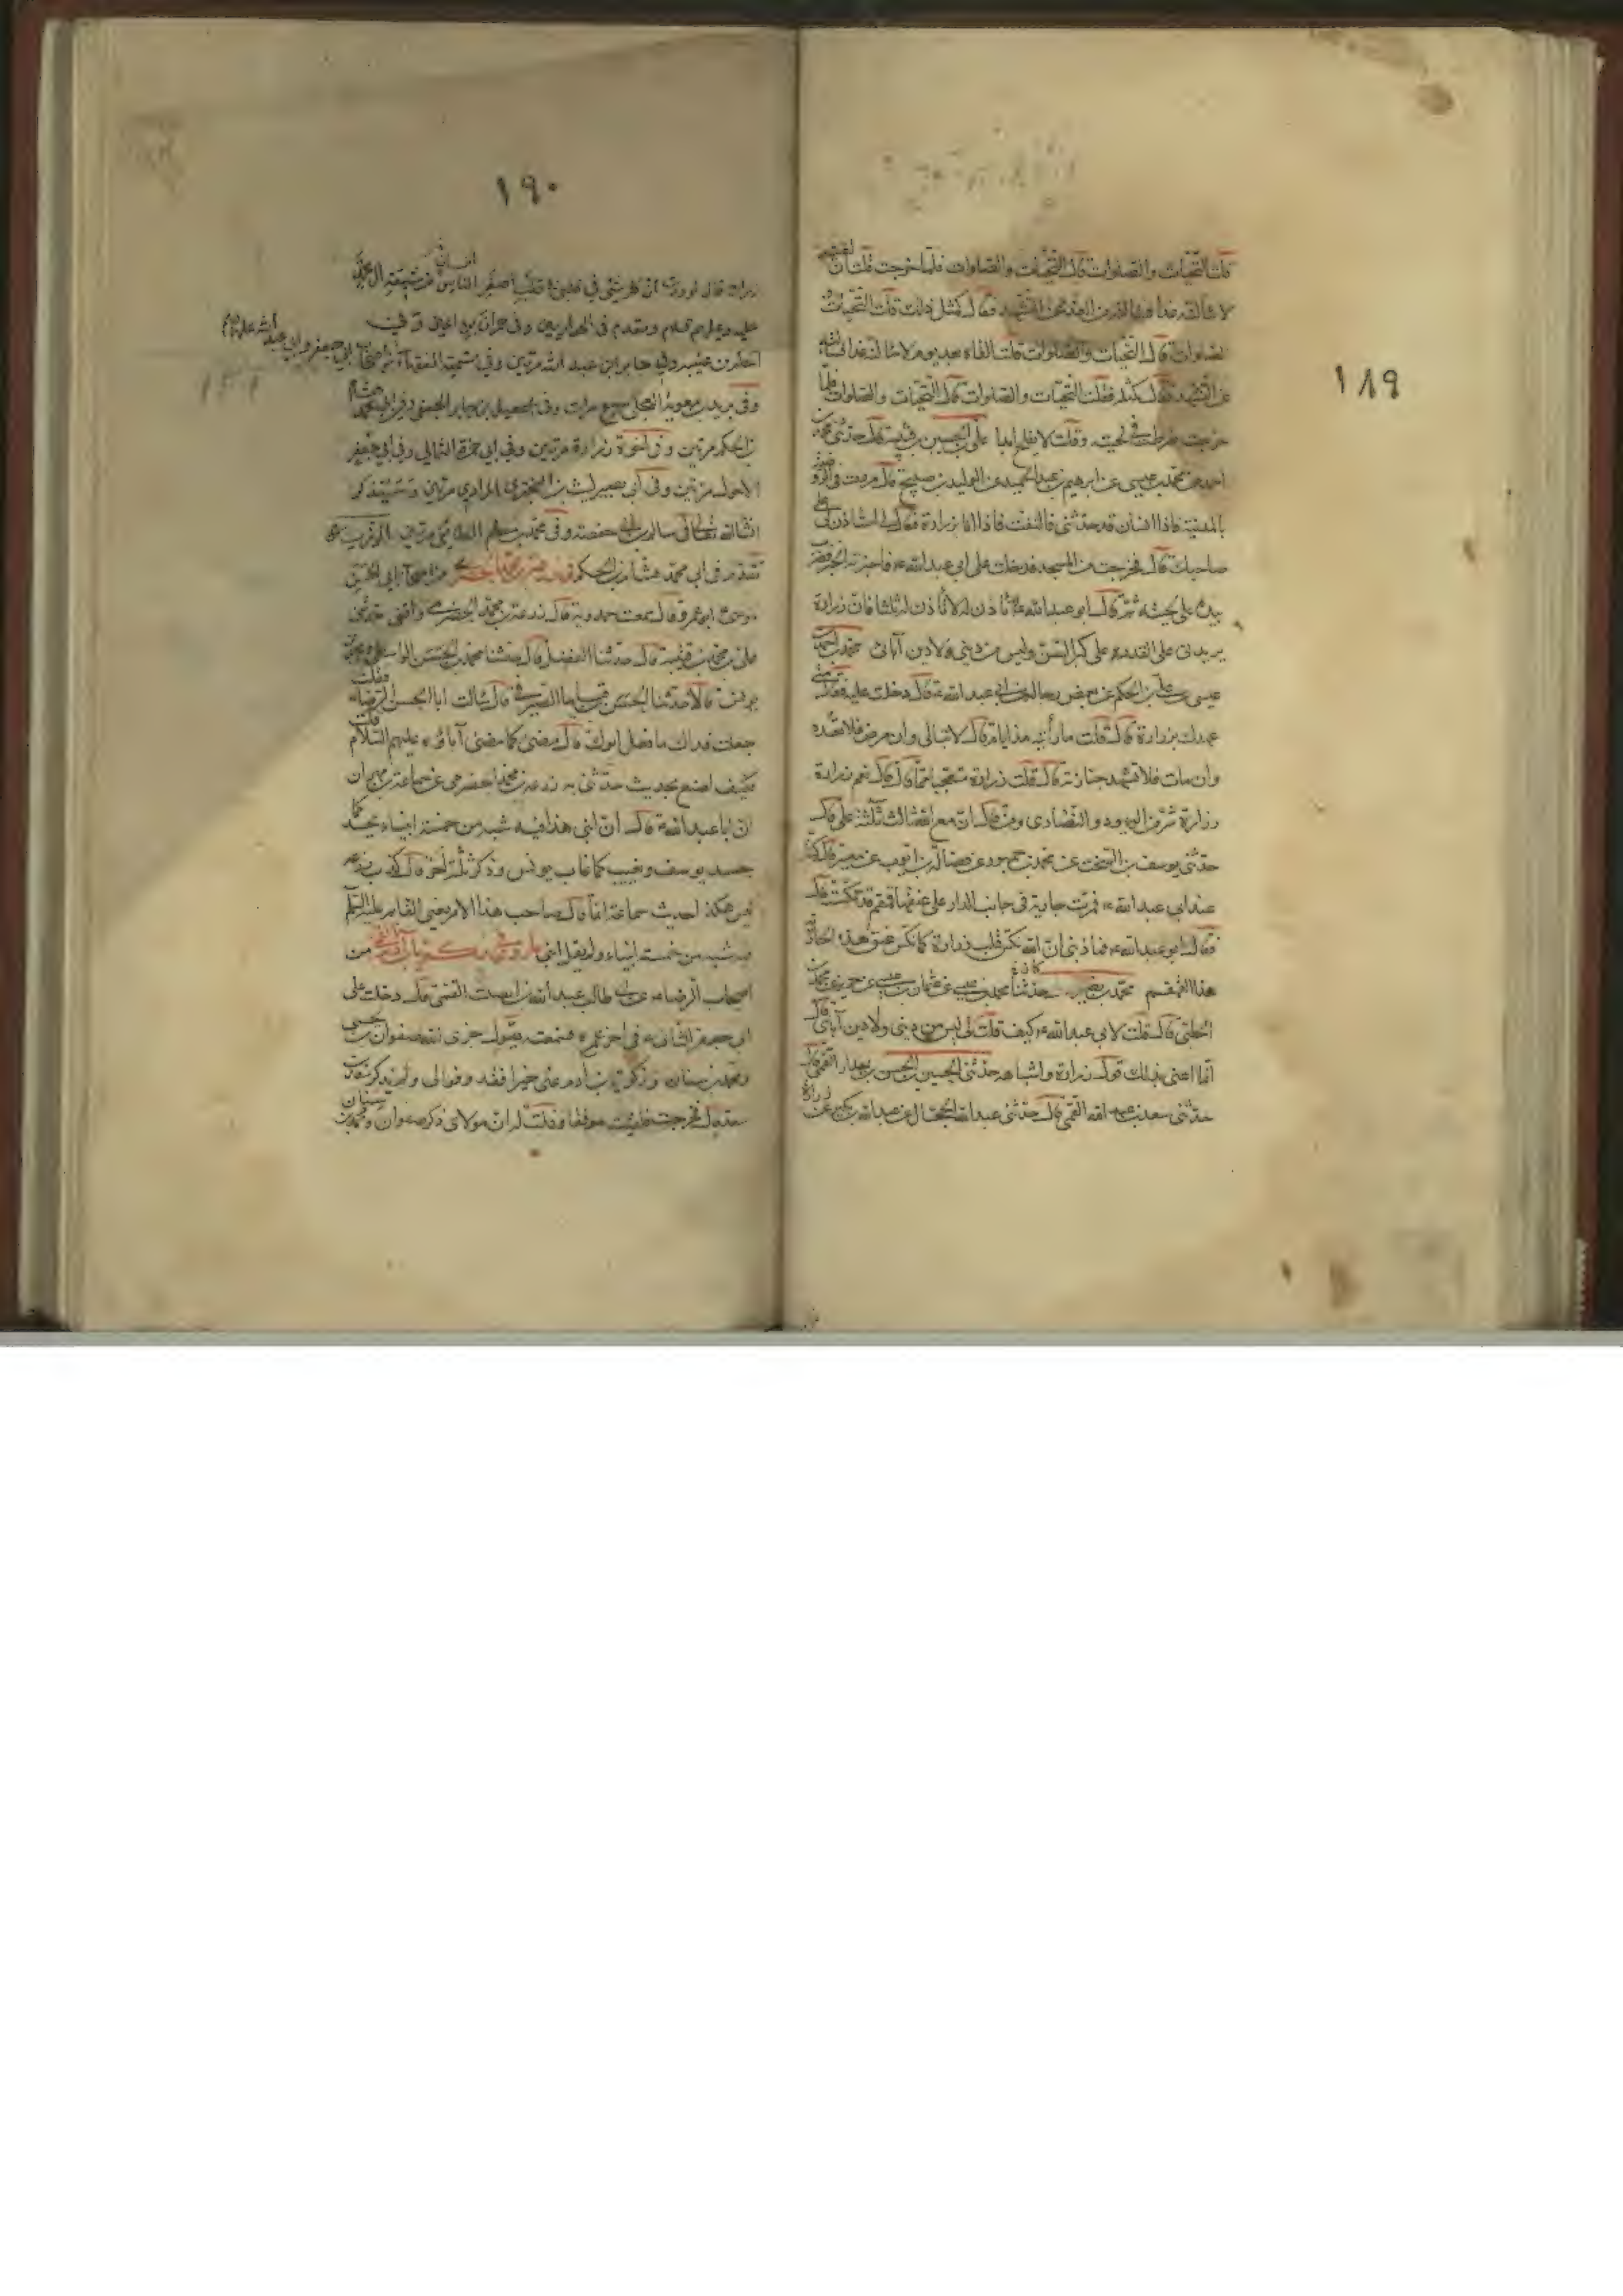 ١٨٩
قلت التحيات والصلوات قال التحيات والصلوات فلما خرجت قلت ان لقيته
لاسألنه غدا فسألته من الغد عن التشهد فقال كمثل ذلك قلت التحيات و
الصلوات قال التحيات والصلوات قلت القاه بعد يوم لاسألنه غدا فسألته
عن التشهد فقال كمثله فقلت التحيات والصلوات قال التحيات والصلوات فلما
خرجت ضرطت في لحيته وقلت لا يفلح ابدا علي بن الحسين بن قتيبة قال حدثني محمد بن
احمد عن محمد بن عيسى عن ابراهيم بن عبد الحميد عن الوليد بن صبيح قال مررت في الروضة
بالمدينة فاذا انسان قد جذبني فالتفت فاذا انا بزرارة فقال لي استاذن لي على
صاحبك قال فخرجت من المسجد فدخلت على ابي عبد الله ع فاخبرته الخبر فضرب
بيده على لحيته ثم قال ابو عبد الله ع لا تاذن له لا تاذن له ثلثا فان زرارة
يريدني على القدر على كبر السن وليس من ديني ولا دين آبائي محمد بن احمد
عيسى عن علي بن الحكم عن بعض رجاله عن ابي عبد الله ع قال دخلت عليه فقال متى
عهدك بزرارة قال قلت ما رأيته منذ ايام قال لا تبالي وان مرض فلا تعده
وان مات فلا تشهد جنازته قال قلت زرارة متعجبا مما قال قال نعم زرارة
زرارة شر من اليهود والنصارى ومن قال ان مع الله ثالث ثلثة علي قال
حدثني يوسف بن السخت عن محمد بن جمهور عن فضالة بن ايوب عن ميسر قال كنا
عند ابي عبد الله ع فمرت جارية في جانب الدار على عنقها قمقم قد نكسته قال
فقال ابو عبد الله ع فما ذنبي ان الله نكس قلب زرارة كما نكس عنق هذه الجارية
هذا القمقم محمد بن نصير حدثنا محمد بن عيسى عن عثمان بن عيسى عن حريز عن محمد
الحلبي قال قلت لابي عبد الله ع كيف قلت لي ليس من ديني ولا دين آبائي قال
انما اعني بذلك قول زرارة واشباهه حدثني الحسين بن الحسن بن بندار القمي قال
حدثني سعد بن عبد الله القمي قال حدثني عبد الله الحجال عن عبد الله بن بكير عن زرارة
١٩٠
من شيعة آل محمد
عليه وعليهم السلام وتقدم في الحواريين وفي حمران بن اعين
جابر بن عبد الله مرتين وفي تسمية الفقهاء من اصحاب ابي جعفر وابي عبد الله عليهما السلام
وفي بريد بن معوية العجلي سبع مرات وفي اسمعيل بن جابر الجعفي وفي
بن الحكم مرتين وفي اخوة زرارة مرتين وفي ابي حمزة الثمالي وفي ابي جعفر
الاحول مرتين وفي ابي بصير ليث بن البختري المرادي مرتين وسيذكر
انشاء الله تعالى في سالم بن ابي حفصة وفي محمد بن مسلم الطائفي مرتين
تقدم في ابي محمد هشام بن الحكم زرعة بن محمد الحضرمي من اصحاب ابي الحسن
موسى ع ابو عمرو قال سمعت حمدويه قال زرعة بن محمد الحضرمي واقفي حدثني
علي بن محمد بن قتيبة قال حدثنا الفضل قال حدثنا محمد بن الحسن الواسطي ومحمد بن
يونس قالا حدثنا الحسن بن قياما الصيرفي قال سالت ابا الحسن الرضا ع فقلت
جعلت فداك ما فعل ابوك قال مضى كما مضى آباؤه عليهم السلام قلت
فكيف اصنع بحديث حدثني به زرعة بن محمد الحضرمي عن سماعة بن مهران
ان ابا عبد الله ع قال ان ابني هذا فيه شبه من خمسة انبياء يحسد كما
حسد يوسف ويغيب كما غاب يونس وذكر ثلثة اخر قال كذب زرعة
ليس هكذا حديث سماعة انما قال صاحب هذا الامر يعني القائم عليه السلم
فيه شبه من خمسة انبياء ولم يقل ابني ما روي في زكريا بن آدم القمي من
اصحاب الرضا ع عن ابي طالب عبد الله بن الصلت القمي قال دخلت على
ابي جعفر الثاني ع في اخر عمره فسمعته يقول جزى الله صفوان بن يحيى
ومحمد بن سنان وزكريا بن آدم عني خيرا فقد وفوا لي ولم يذكر سعد بن
سعد قال فخرجت فلقيت موفقا فقلت له ان مولاي ذكر صفوان ومحمد بن سنان